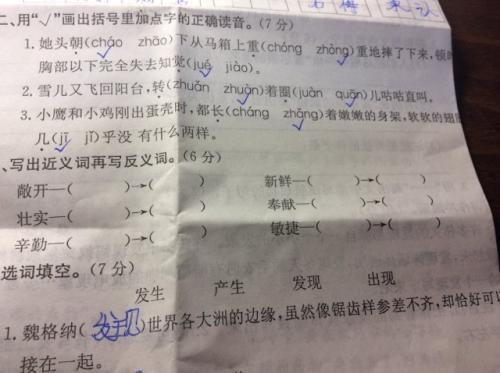 二、用“√”画出括号里加点字的正确读音。(7 分)
1. 她头朝(cháo zhāo)下从马箱上重(chóng zhòng)重地摔了下来,顿
胸部以下完全失去知觉(jué jiào)。
2. 雪儿又飞回阳台,转(zhuǎn zhuàn)着圈(juàn quān)儿咕咕直叫。
3. 小鹰和小鸡刚出蛋壳时,都长(cháng zhǎng)着嫩嫩的身架,软软的翅
几(jī jǐ)乎没 有什么两样。
、写出近义词再写反义词。(6 分)
敞开—( )→( ) 新鲜—( )→( )
壮实—( )→( ) 奉献—( )→( )
辛勤—( )→( ) 敏捷—( )→( )
选词填空。(7 分)
发生 产生 发现 出现
1. 魏格纳(发现)世界各大洲的边缘,虽然像锯齿样参差不齐,却恰好可以
接在一起。